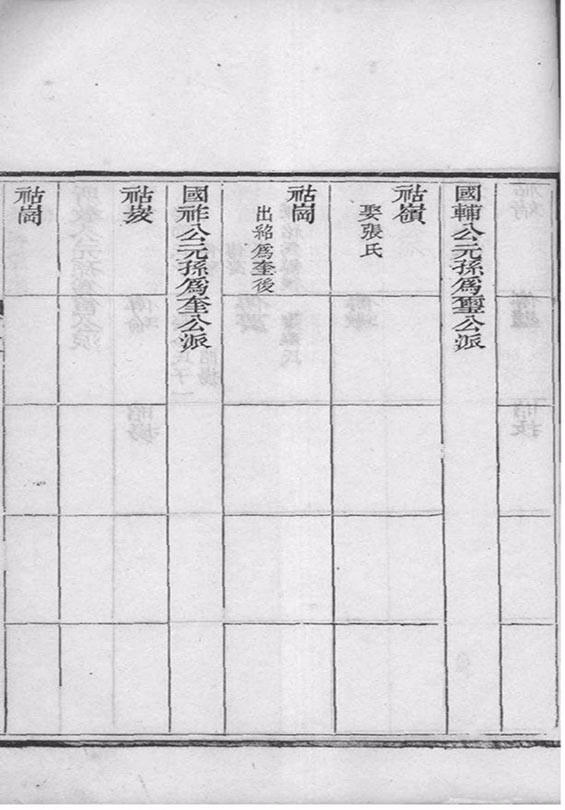 國輔公元孫為璽公派
祜嶺
娶張氏
祜崗
出紹為奎後
國祚公元孫為奎公派
祜崚
祜崗